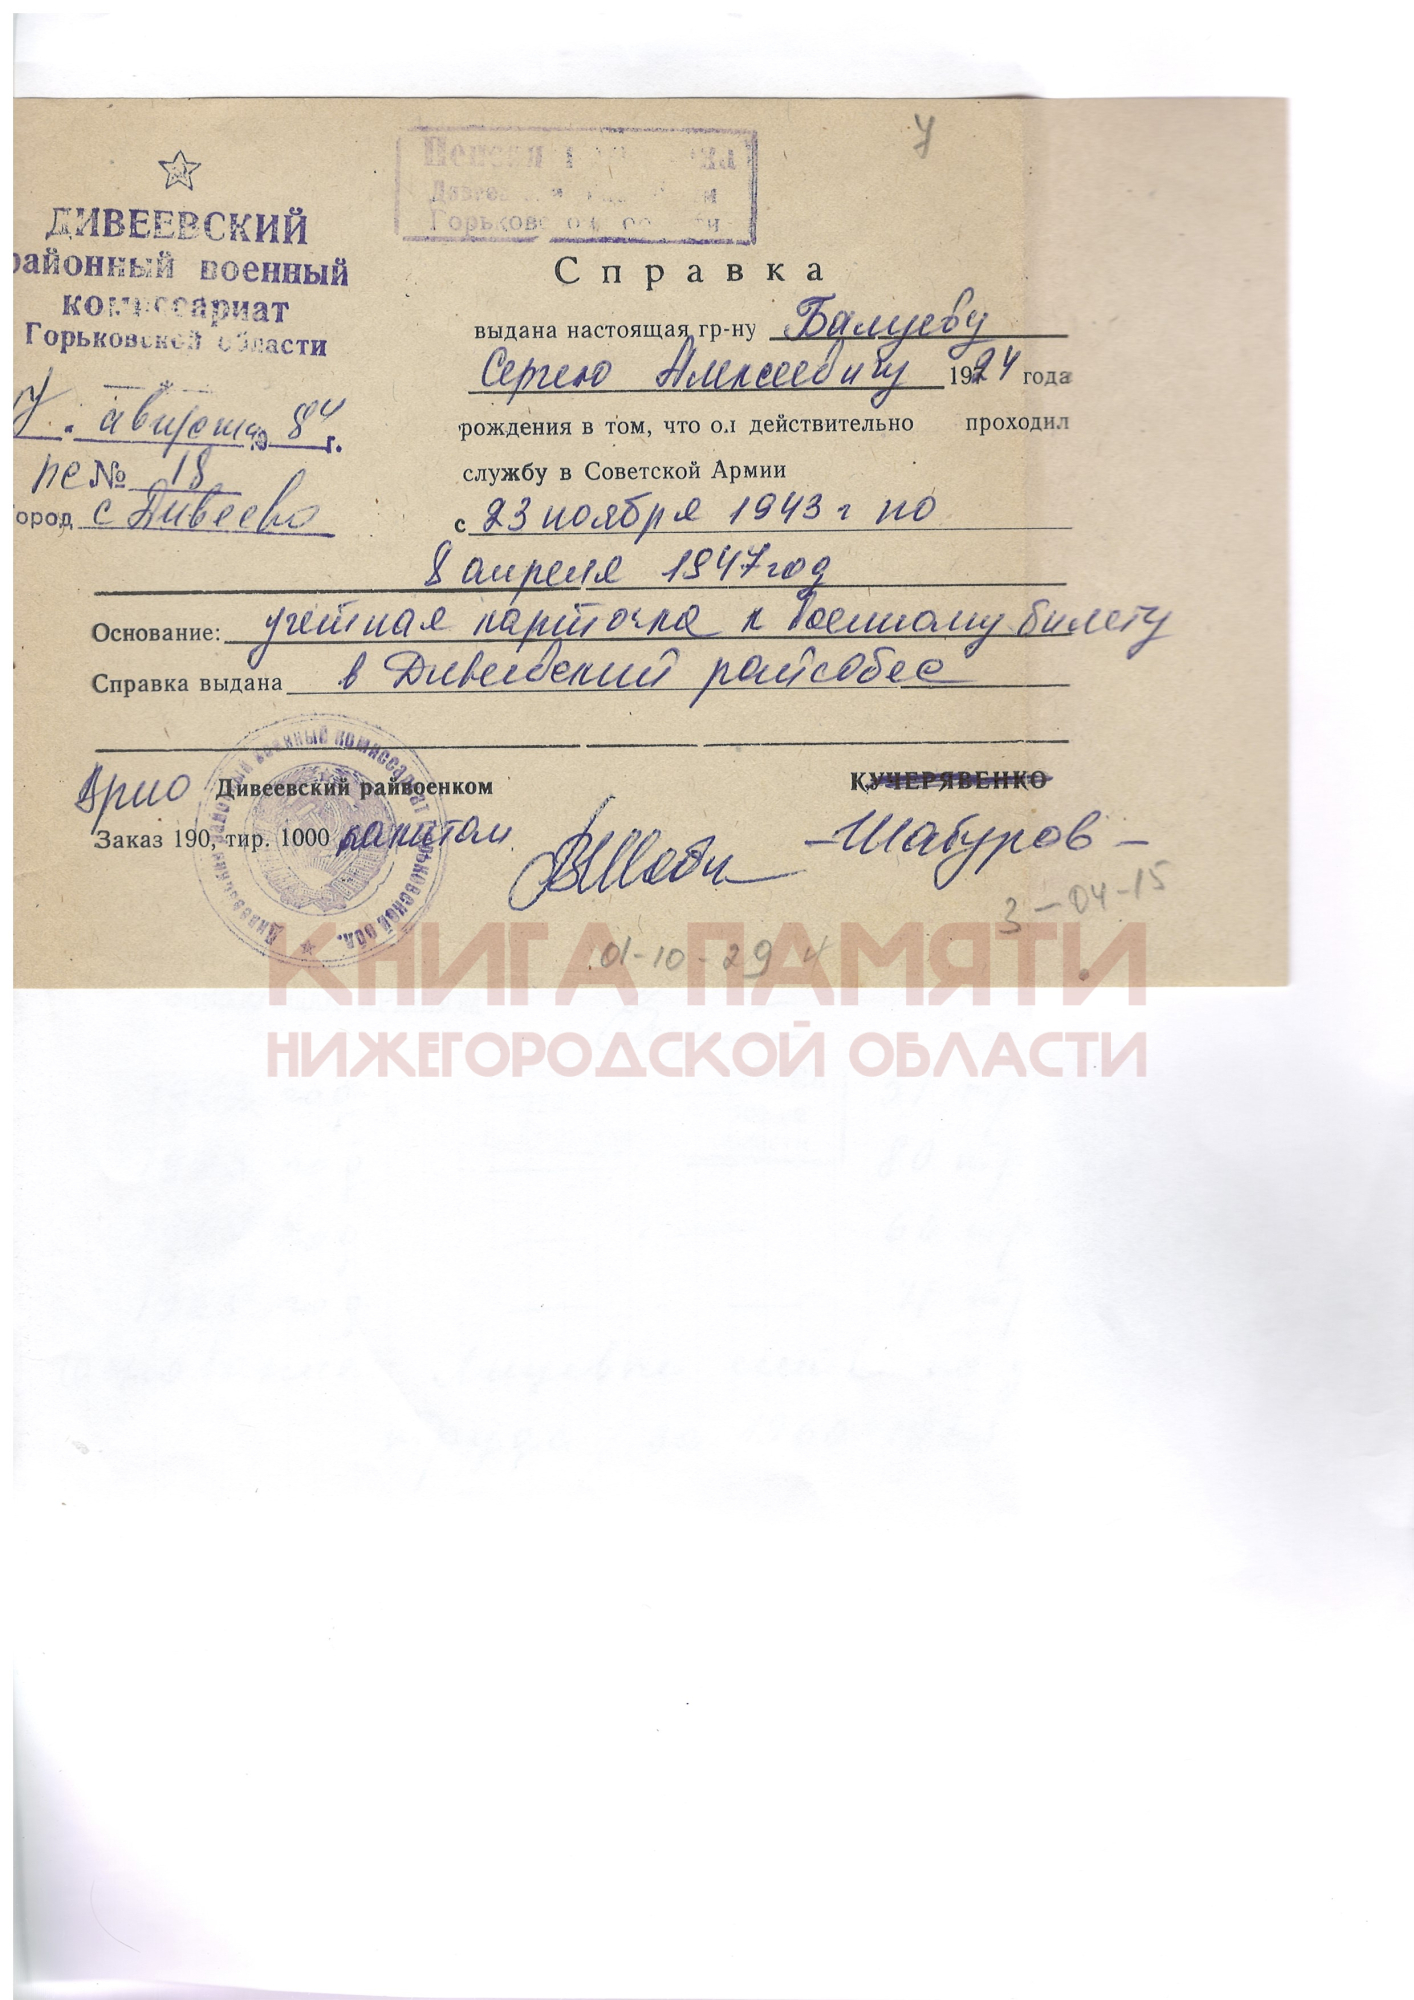 7
ДИВЕЕВСКИЙ
районный военный
комиссариат
Горьковской области
7. августа 84 г.
№ 18
ород с Дивеево
Горьковской области
Справка
выдана настоящая гр-ну Балуеву
Сергею Алексеевичу 1924 года
рождения в том, что он действительно проходил
службу в Советской Армии
с 23 ноября 1943 г по
8 апреля 1947 год
Основание: учетная карточка к военному билету
Справка выдана в Дивеевский райсобес
Врио Дивеевский райвоенком КУЧЕРЯВЕНКО
Заказ 190, тир. 1000 капитан -Шабуров-
Дивеевский районный военный комиссариат Горьковской обл.
3-04-15
01-10-29
КНИГА ПАМЯТИ
НИЖЕГОРОДСКОЙ ОБЛАСТИ